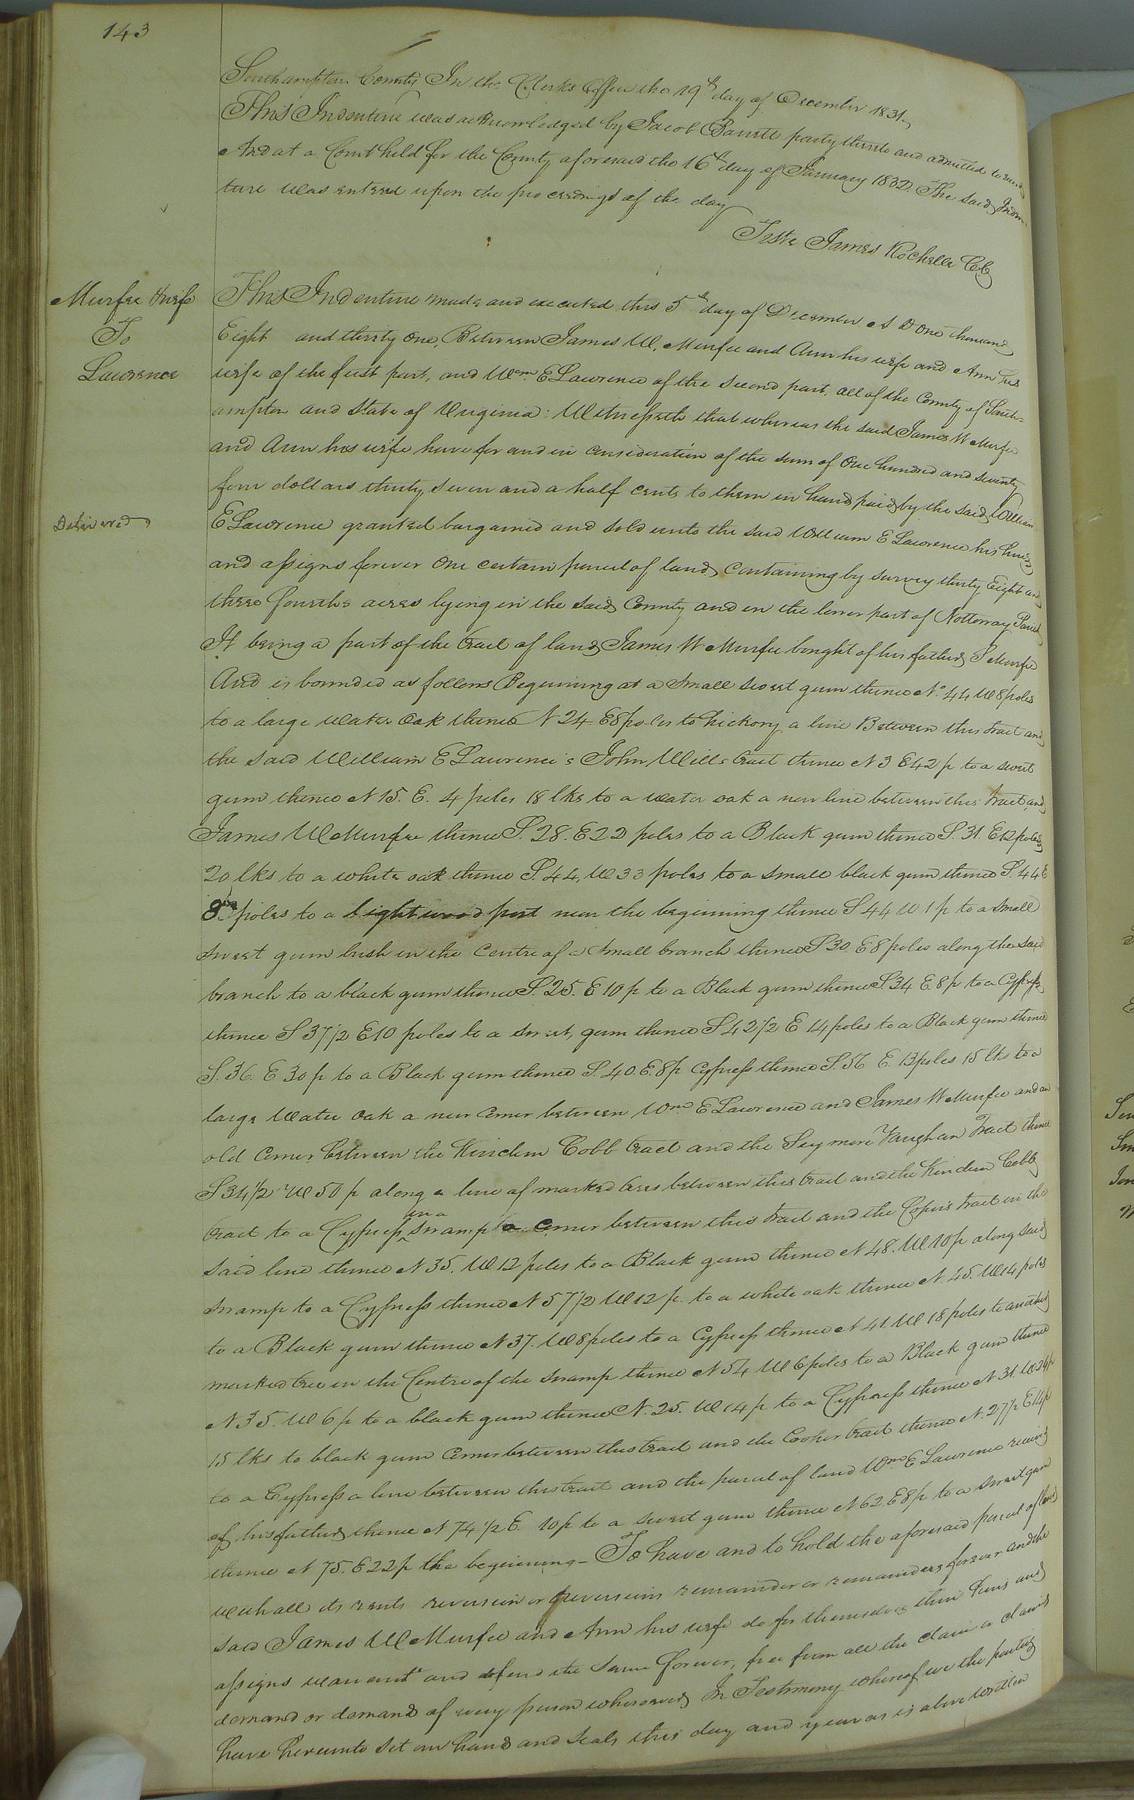 143
Southampton County In the Clerks Office the 19th day of December 1831
This Indenture was acknowledged by Jacob Barrett party thereto and admitted to record
And at a Court held for the County aforesaid the 16th day of January 1832 The said Inden
ture was entered upon the proceedings of the day
Teste James Rochelle CC
Murfee & wife
To
Lawrence
This Indenture made and executed this 5th day of December A D One thousand
Eight and thirty one, Between James W. Murfee and Ann his wife and Ann his
wife of the first part, and Wm E Lawrence of the second part, all of the County of South=
ampton and State of Virginia: Witnesseth that whereas the said James W Murfee
and Ann his wife have for and in consideration of the sum of One hundred and seventy
four dollars thirty seven and a half cents to them in hand paid by the said William
Delivered
E Lawrence granted bargained and sold unto the said William E Lawrence his heirs
and assigns forever One certain parcel of land containing by survey thirty Eight and
three fourths acres lying in the said County and in the lower part of Nottoway Parish
It being a part of the tract of land James W Murfee bought of his father S Murfee
And is bounded as follows Beginning at a small sweet gum thence No 44 W 8 poles
to a large water oak thence N 24 E 8 poles to hickory a line Between this tract and
the said William E Lawrence's John Wills tract thence N 3 E 42 p to a sweet
gum thence N 15. E. 4 poles 18 lks to a water oak a new line between this tract and
James W Murfee thence S. 28 E 22 poles to a Black gum thence S. 31. E 12 poles
20 lks to a white oak thence S. 44. W 33 poles to a small black gum thence S. 44 E
8 poles to a lightwood post near the beginning thence S 44 W 1 p to a small
sweet gum bush in the Centre of a small branch thence S 30 E 8 poles along the said
branch to a black gum thence S. 25. E 10 p to a Black gum thence S 34 E. 8 p to a Cypress
thence S 37 1/2 E 10 poles to a sweet gum thence S 42 1/2 E 14 poles to a Black gum thence
S. 36. E 30 p to a Black gum thence S. 40. E. 8 p Cypress thence S. 56 E 13 poles 15 lks to a
large Water oak a new corner between Wm E Lawrence and James W Murfee and an
old corner between the Kinchen Cobb tract and the Seymore Vaughan Tract thence
S 34 1/2 W 50 p along a line of marked trees between this tract and the Kinchen Cobb
tract to a Cypress in a swamp a corner between this tract and the Coker tract in the
said line thence N 35. W 12 poles to a Black gum thence N 48. W 10 p along said
swamp to a Cypress thence N 57 1/2 W 12 p. to a white oak thence N. 45. W 14 poles
to a Black gum thence N 37. W 8 poles to a Cypress thence N 41. W 18 poles to another
marked tree in the Centre of the swamp thence N 54 W 6 poles to a Black gum thence
N 35. W 6 p to a black gum thence N. 25. W 14 p to a Cypress thence N 31. W 24 p
15 lks to black gum corner between this tract and the Coker tract thence N. 27 1/2 E 14 p
to a Cypress a line between this tract and the parcel of land Wm E Lawrence received
of his father thence N 74 1/2 E. 10 p to a sweet gum thence N 62. E 8 p to a sweet gum
thence N 75. E 22 p the beginning - To have and to hold the aforesaid parcel of land
with all its rents reversion or reversions remainder or remainders forever and the
said James W Murfee and Ann his wife do for themselves their heirs and
assigns warrant and defend the same forever, free from all the claim or claims
demand or demands of every person whomsoever In Testimony whereof we the parties
have hereunto set our hands and seals this day and year as is above written